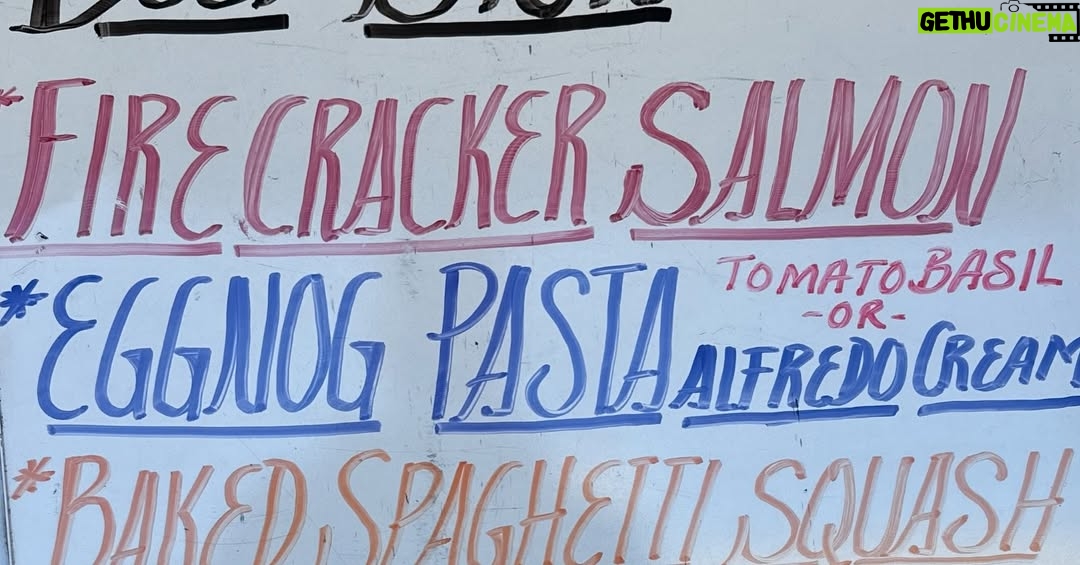 GETHUCINEMA
*FIRECRACKER SALMON
*EGGNOG PASTA
TOMATO BASIL
-OR-
ALFREDO CREAM
*BAKED SPAGHETTI SQUASH